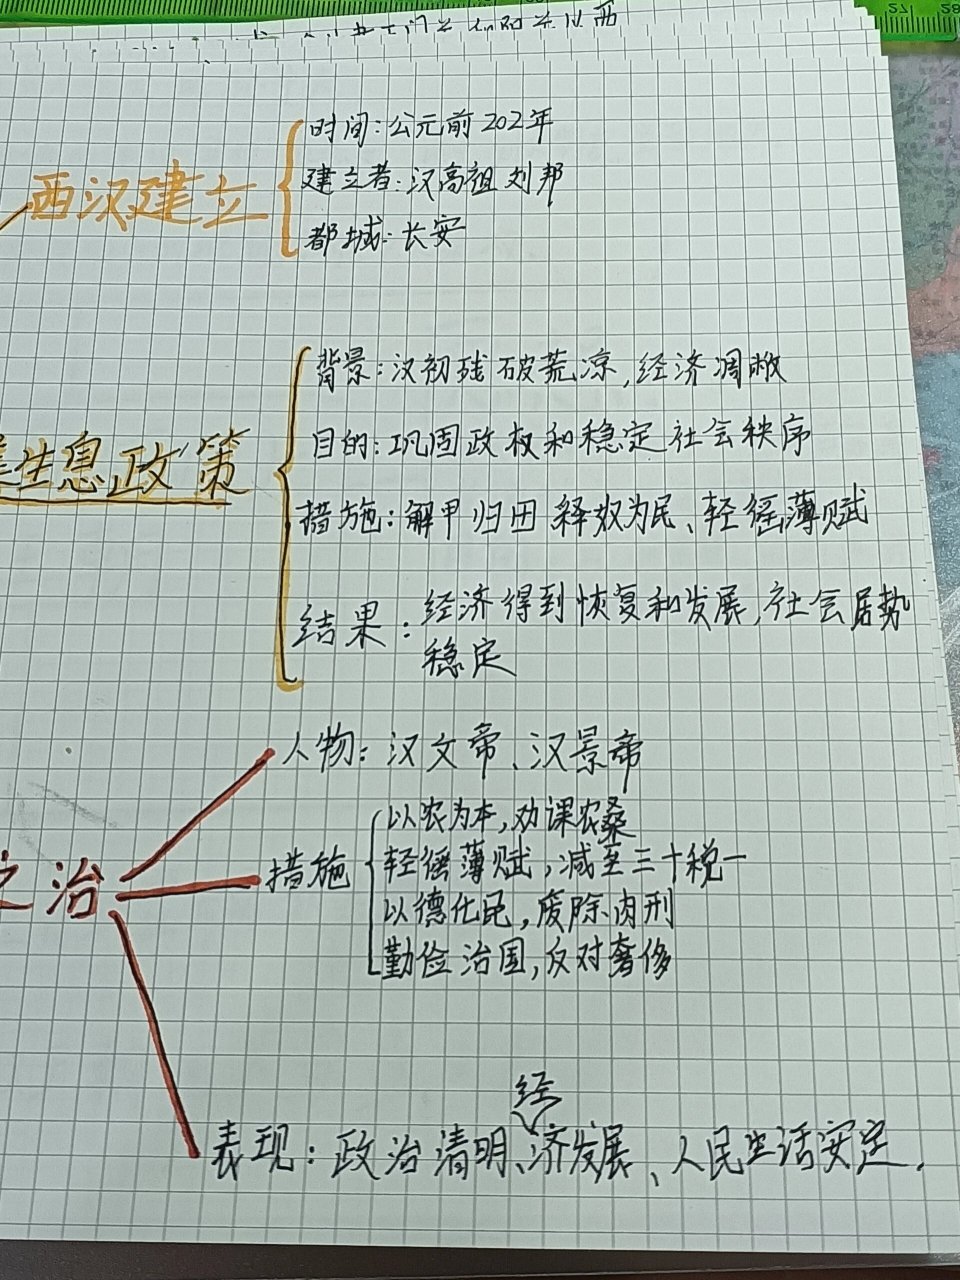 西汉建立
时间:公元前202年
建立者:汉高祖刘邦
都城:长安
生息政策
背景:汉初残破荒凉,经济凋敝
目的:巩固政权和稳定社会秩序
措施:解甲归田 释奴为民、轻徭薄赋
结果:经济得到恢复和发展,社会局势
稳定
之治
人物:汉文帝、汉景帝
措施
以农为本,劝课农桑
轻徭薄赋,减至三十税一
以德化民,废除肉刑
勤俭治国,反对奢侈
表现:政治清明、经济发展、人民生活安定.